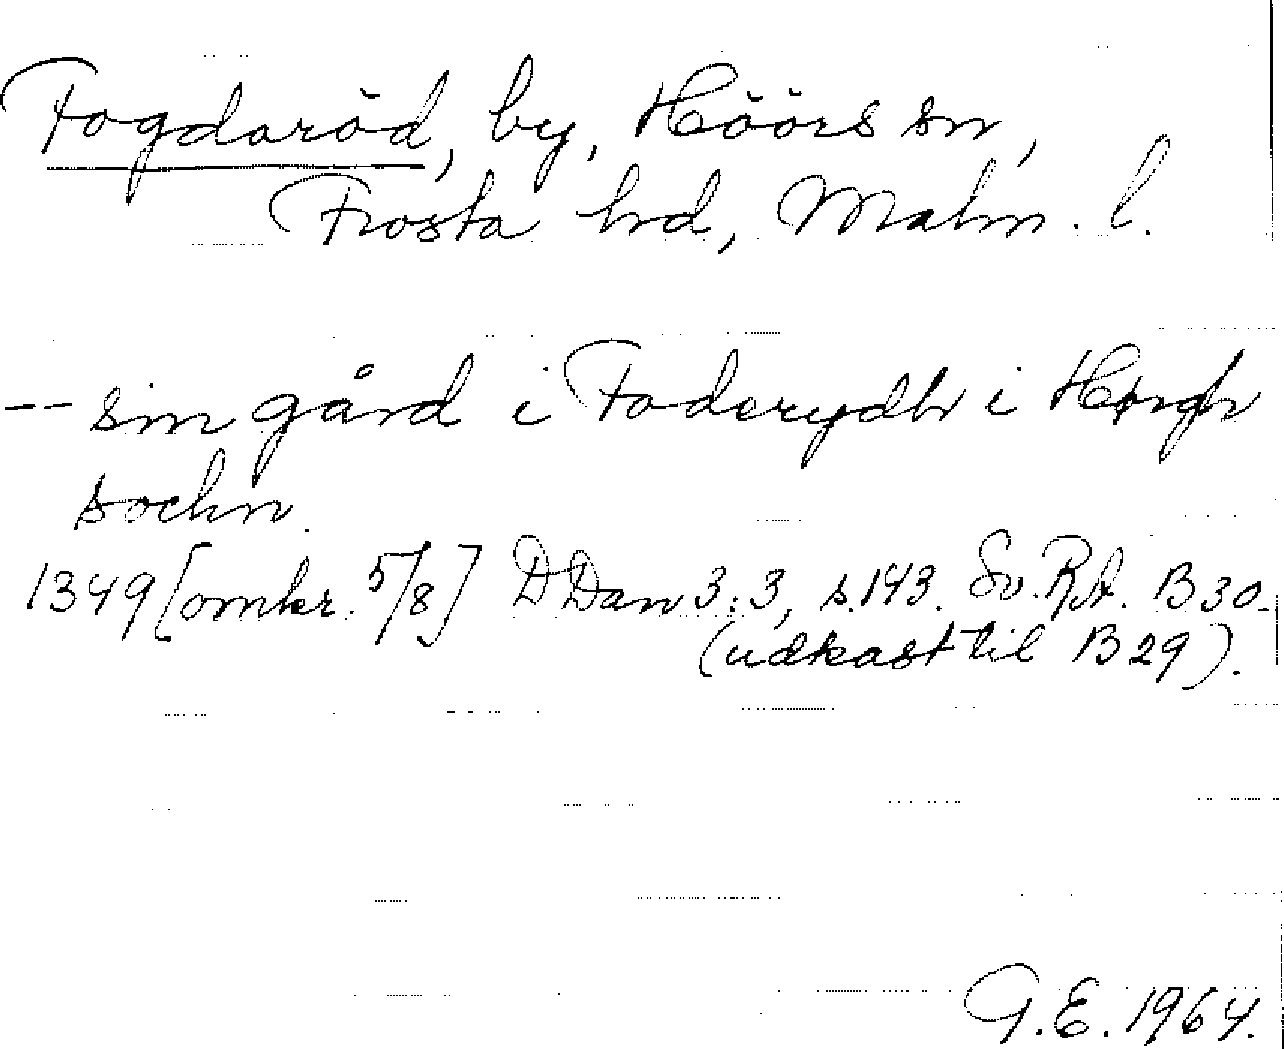 Fogdaröd, by, Höörs sn,
Frosta hd, Malm. l.
-- sin gård i Foderydh i Hørgh
sochn.
1349 [omkr. 5/8] DDan 3:3, s.143. Sv. RA. B 30.
(udkast til B 29).
G.E. 1964.